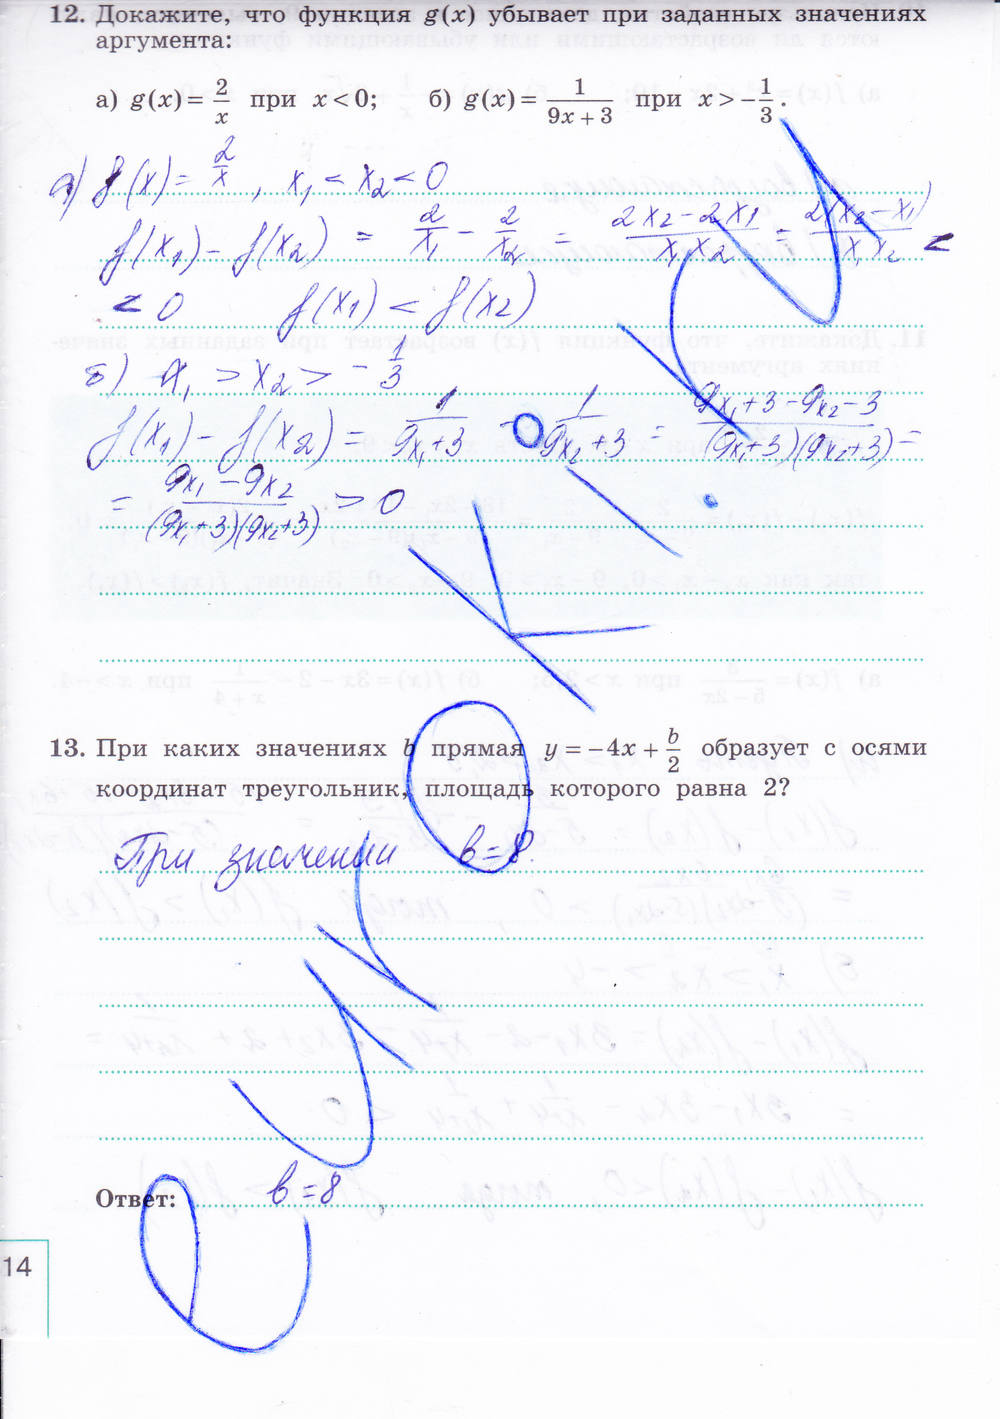 12. Докажите, что функция g(x) убывает при заданных значениях
аргумента:
а) g(x) = 2/x при x < 0; б) g(x) = 1/(9x + 3) при x > -1/3.
а) f(x) = 2/x, x₁ < x₂ < 0
f(x₁) - f(x₂) = 2/x₁ - 2/x₂ = (2x₂ - 2x₁)/(x₁x₂) = 2(x₂ - x₁)/(x₁x₂) <
< 0 f(x₁) < f(x₂)
б) x₁ > x₂ > -1/3
f(x₁) - f(x₂) = 1/(9x₁+3) - 1/(9x₂+3) = (9x₁+3-9x₂-3)/((9x₁+3)(9x₂+3)) =
= (9x₁ - 9x₂)/((9x₁+3)(9x₂+3)) > 0
13. При каких значениях b прямая y = -4x + b/2 образует с осями
координат треугольник, площадь которого равна 2?
При значении b = 8.
Ответ: b = 8
14
eurOKI.RU